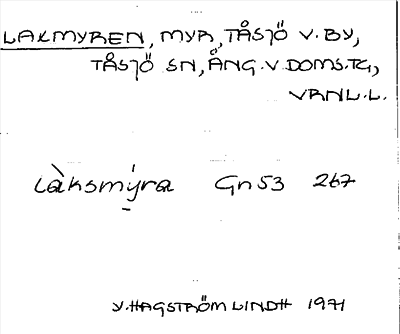 LAKMYREN, MYR, TÅSJÖ V. BY,
TÅSJÖ SN, ÅNG. V. DOMS. TG,
VRNL. L.
làksmýra Gn 53 267
Y. HAGSTRÖM LINDH 1971